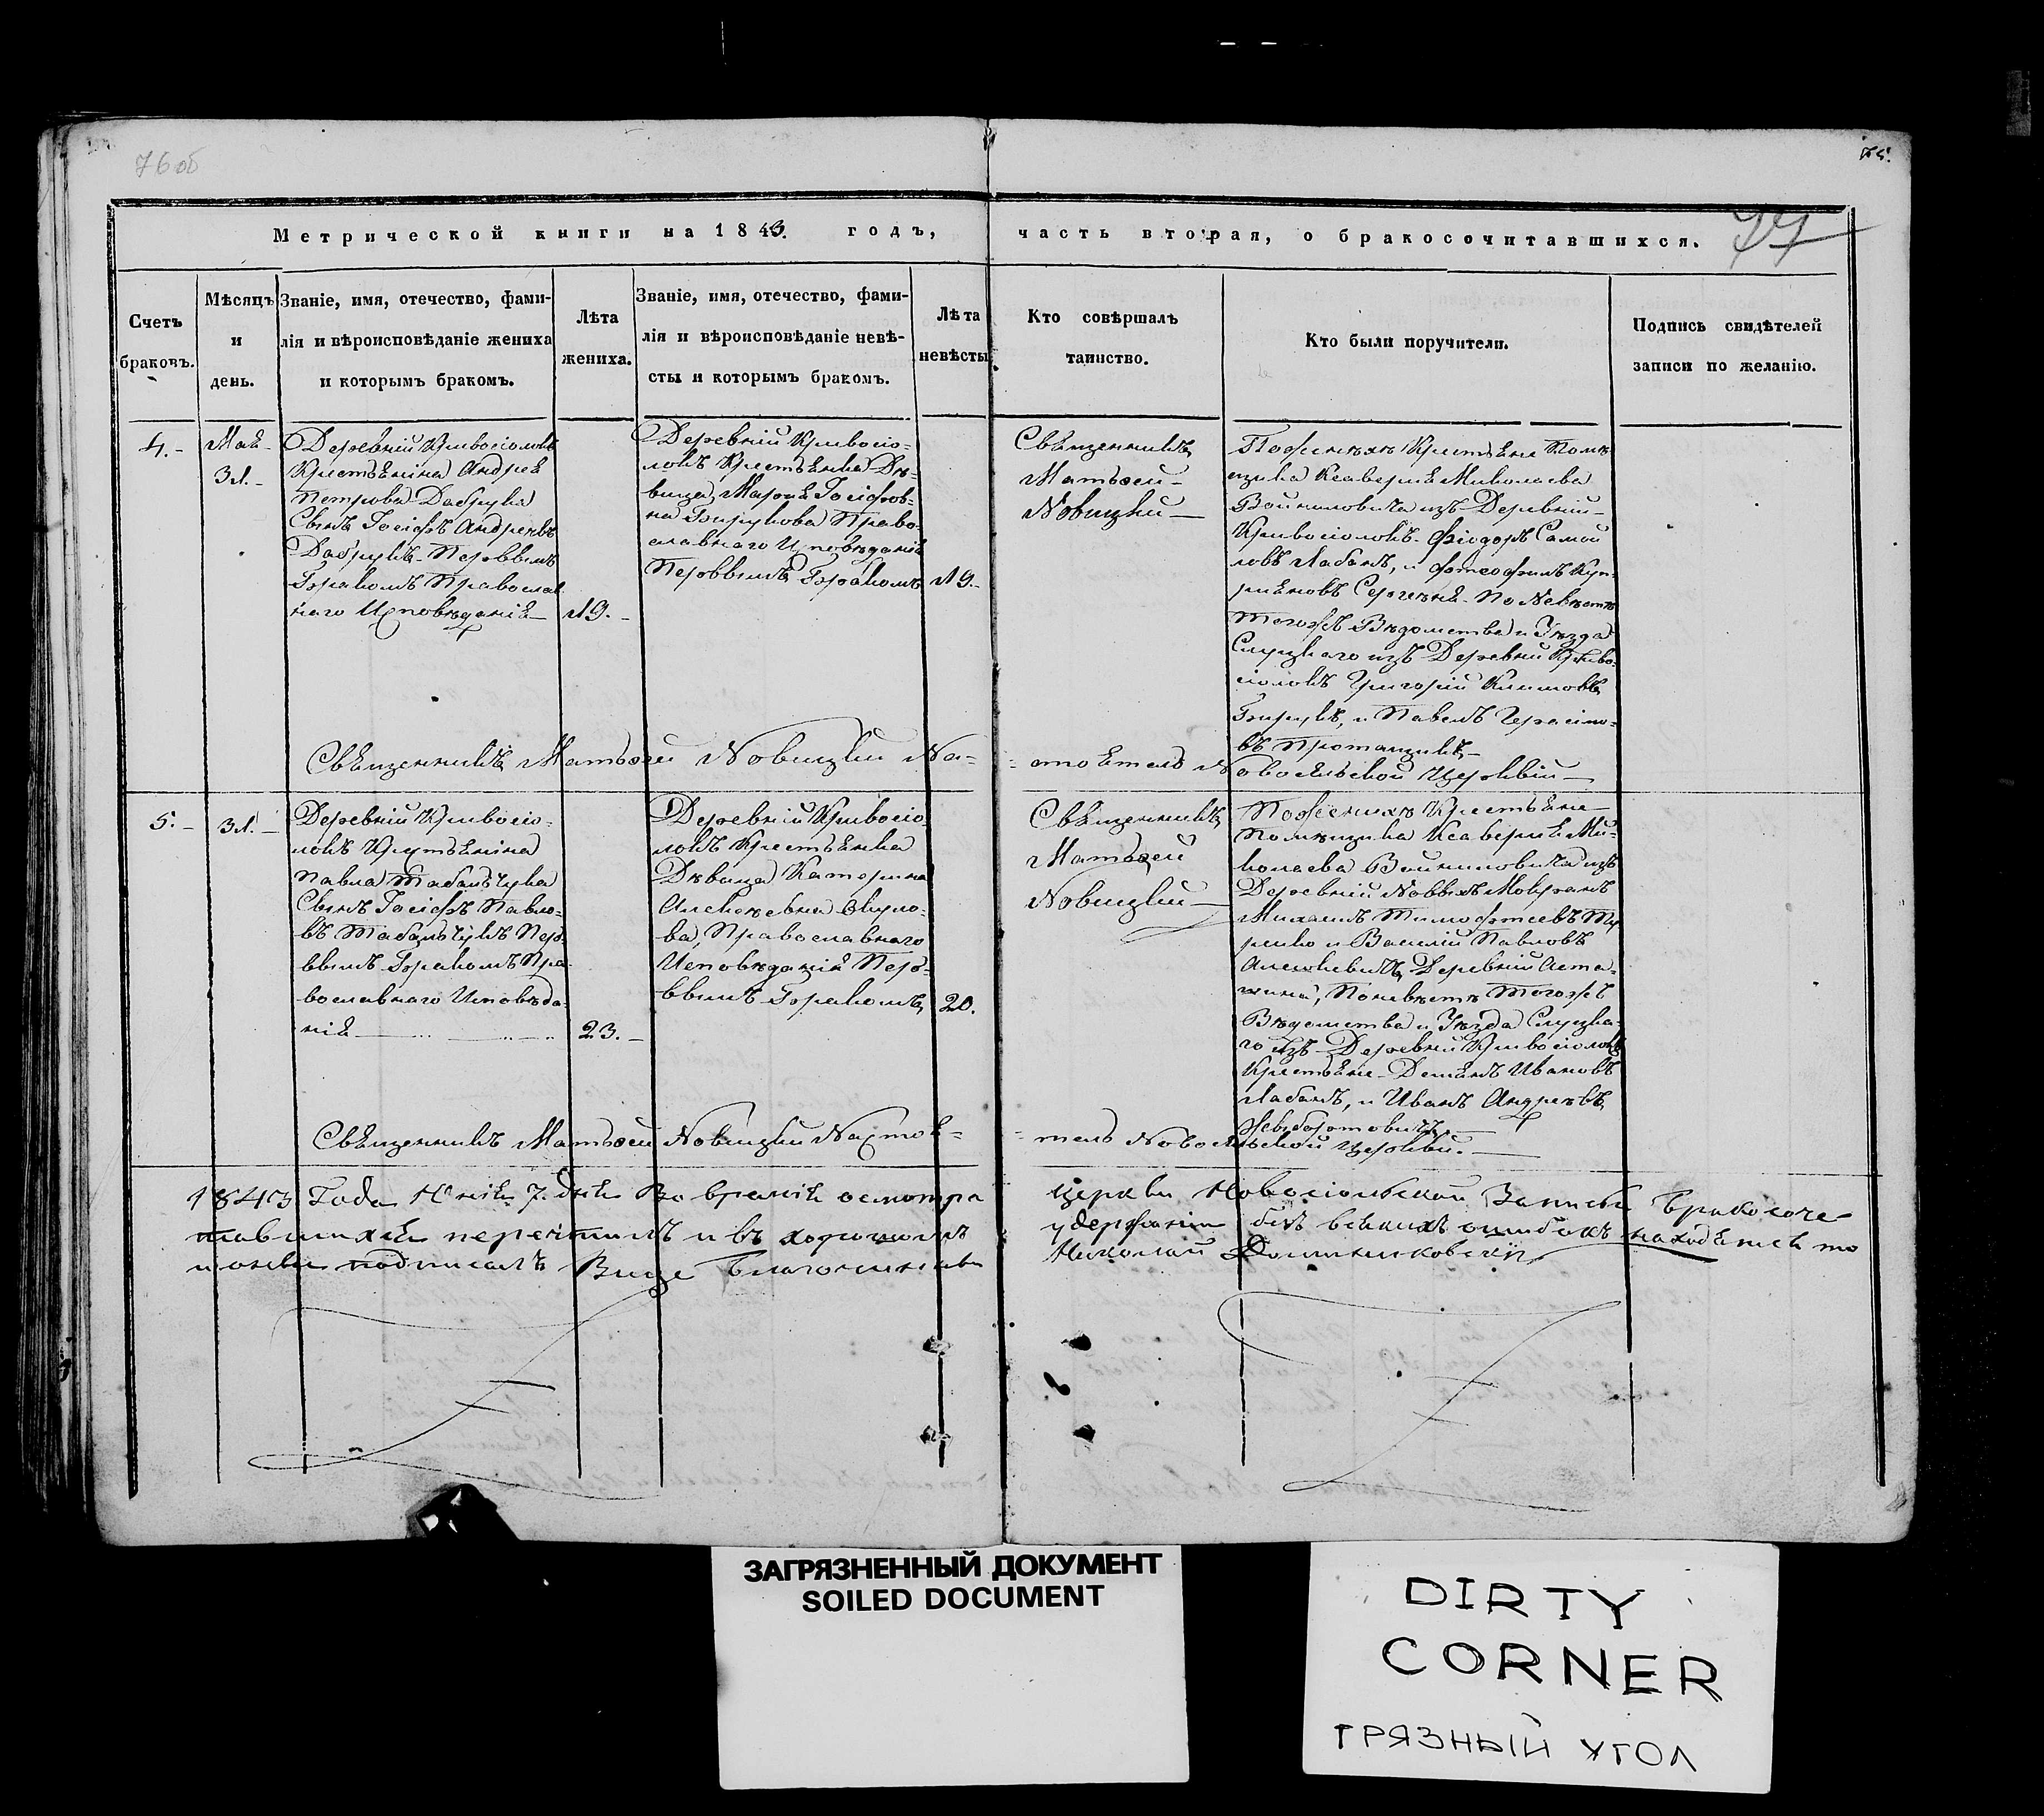 76 об
75.
77
Метрической книги на 1843. годъ, часть вторая, о бракосочитавшихся.
Счетъ браковъ.
Мѣсяцъ и день.
Званіе, имя, отечество, фами-
лія и вѣроисповѣданіе жениха
и которымъ бракомъ.
Лѣта
жениха.
Званіе, имя, отечество, фами-
лія и вѣроисповѣданіе невѣ-
сты и которымъ бракомъ.
Лѣта
невѣсты
Кто совѣршалъ
таинство.
Кто были поручители.
Подпись свидѣтелей
записи по желанію.
4.-
Маѣ-
31.-
Деревній Кривосіолокъ
Крестьѣнина Андреѣ
Петрова Дабрука
Сынъ Іосіфъ Андреѣвъ
Дабрукъ- Перввымъ
Бракомъ Православ
наго Исповѣданіѣ-
19.-
Деревній Кривосіо-
локъ Крестьѣнка Дѣ-
вица, Маріѣ Іосіфов-
на Право-
славнаго Исповѣданіѣ
Перввымъ Бракомъ
19.-
Свѣщенникъ
Матѳей-
Новицкій-
Поженихѣ Крестьѣне Помѣ-
щика Ксаверіѣ Миколаева
Войниловича изъ Деревній-
Кривосіолокъ- Фіодоръ Самой
ловъ Лабанъ, и
По Невѣстѣ
Тогожъ Вѣдомства и Уѣзда
Слуцкаго изъ Деревній Криво-
сіолокъ Григорій Климовъ
и Павелъ Герасімо-
въ
Свѣщенникъ Матѳей Новицкій На-
стоѣтель Новосѣльской Церквій-
5.-
31.-
Деревній Кривосіо-
локъ Крестьѣнина
Павла Табальчука
Сынъ Іосіфъ Павло-
въ Табальчукъ Пер-
ввымъ Бракомъ Пра-
вославнаго Исповѣда-
ніѣ
23.-
Деревній Кривосіо-
локъ Крестьѣнка
Дѣвица Катерина
Алексѣевна
Православнаго
Исповѣданіѣ Пер-
ввымъ Бракомъ
20.
Свѣщенникъ
Матѳей
Новицкій-
Поженихѣ Крестьѣне-
Помѣщика Ксаверіѣ Ми-
колаева Войниловича изъ
Деревній Новвыхъ
Михаилъ Тимофтеевъ
и Василій Павловъ
Деревній
Поневѣстѣ Тогожъ
Вѣдомства и Уѣзда Слуцка-
го Изъ Деревній Кривосіолокъ
Крестьѣне- Демѣнъ Ивановъ
Лабанъ, и Иванъ Андреѣвъ
Свѣщенникъ Матѳей Новицкій Настоѣ-
тель Новосѣльской Церквій.-
1843 Года 7. днѣ Во времіѣ осмотра церкви Новосіольской Записи бракосоче-
тавшихсѣ перечтилъ и въ хорошомъ удержаніи безъ всѣкихъ ошибокъ находѣтсѣ то
и оные подписалъ Вице Благочинный Николай
ЗАГРЯЗНЕННЫЙ ДОКУМЕНТ
SOILED DOCUMENT
DIRTY
CORNER
ГРЯЗНЫЙ УГОЛ